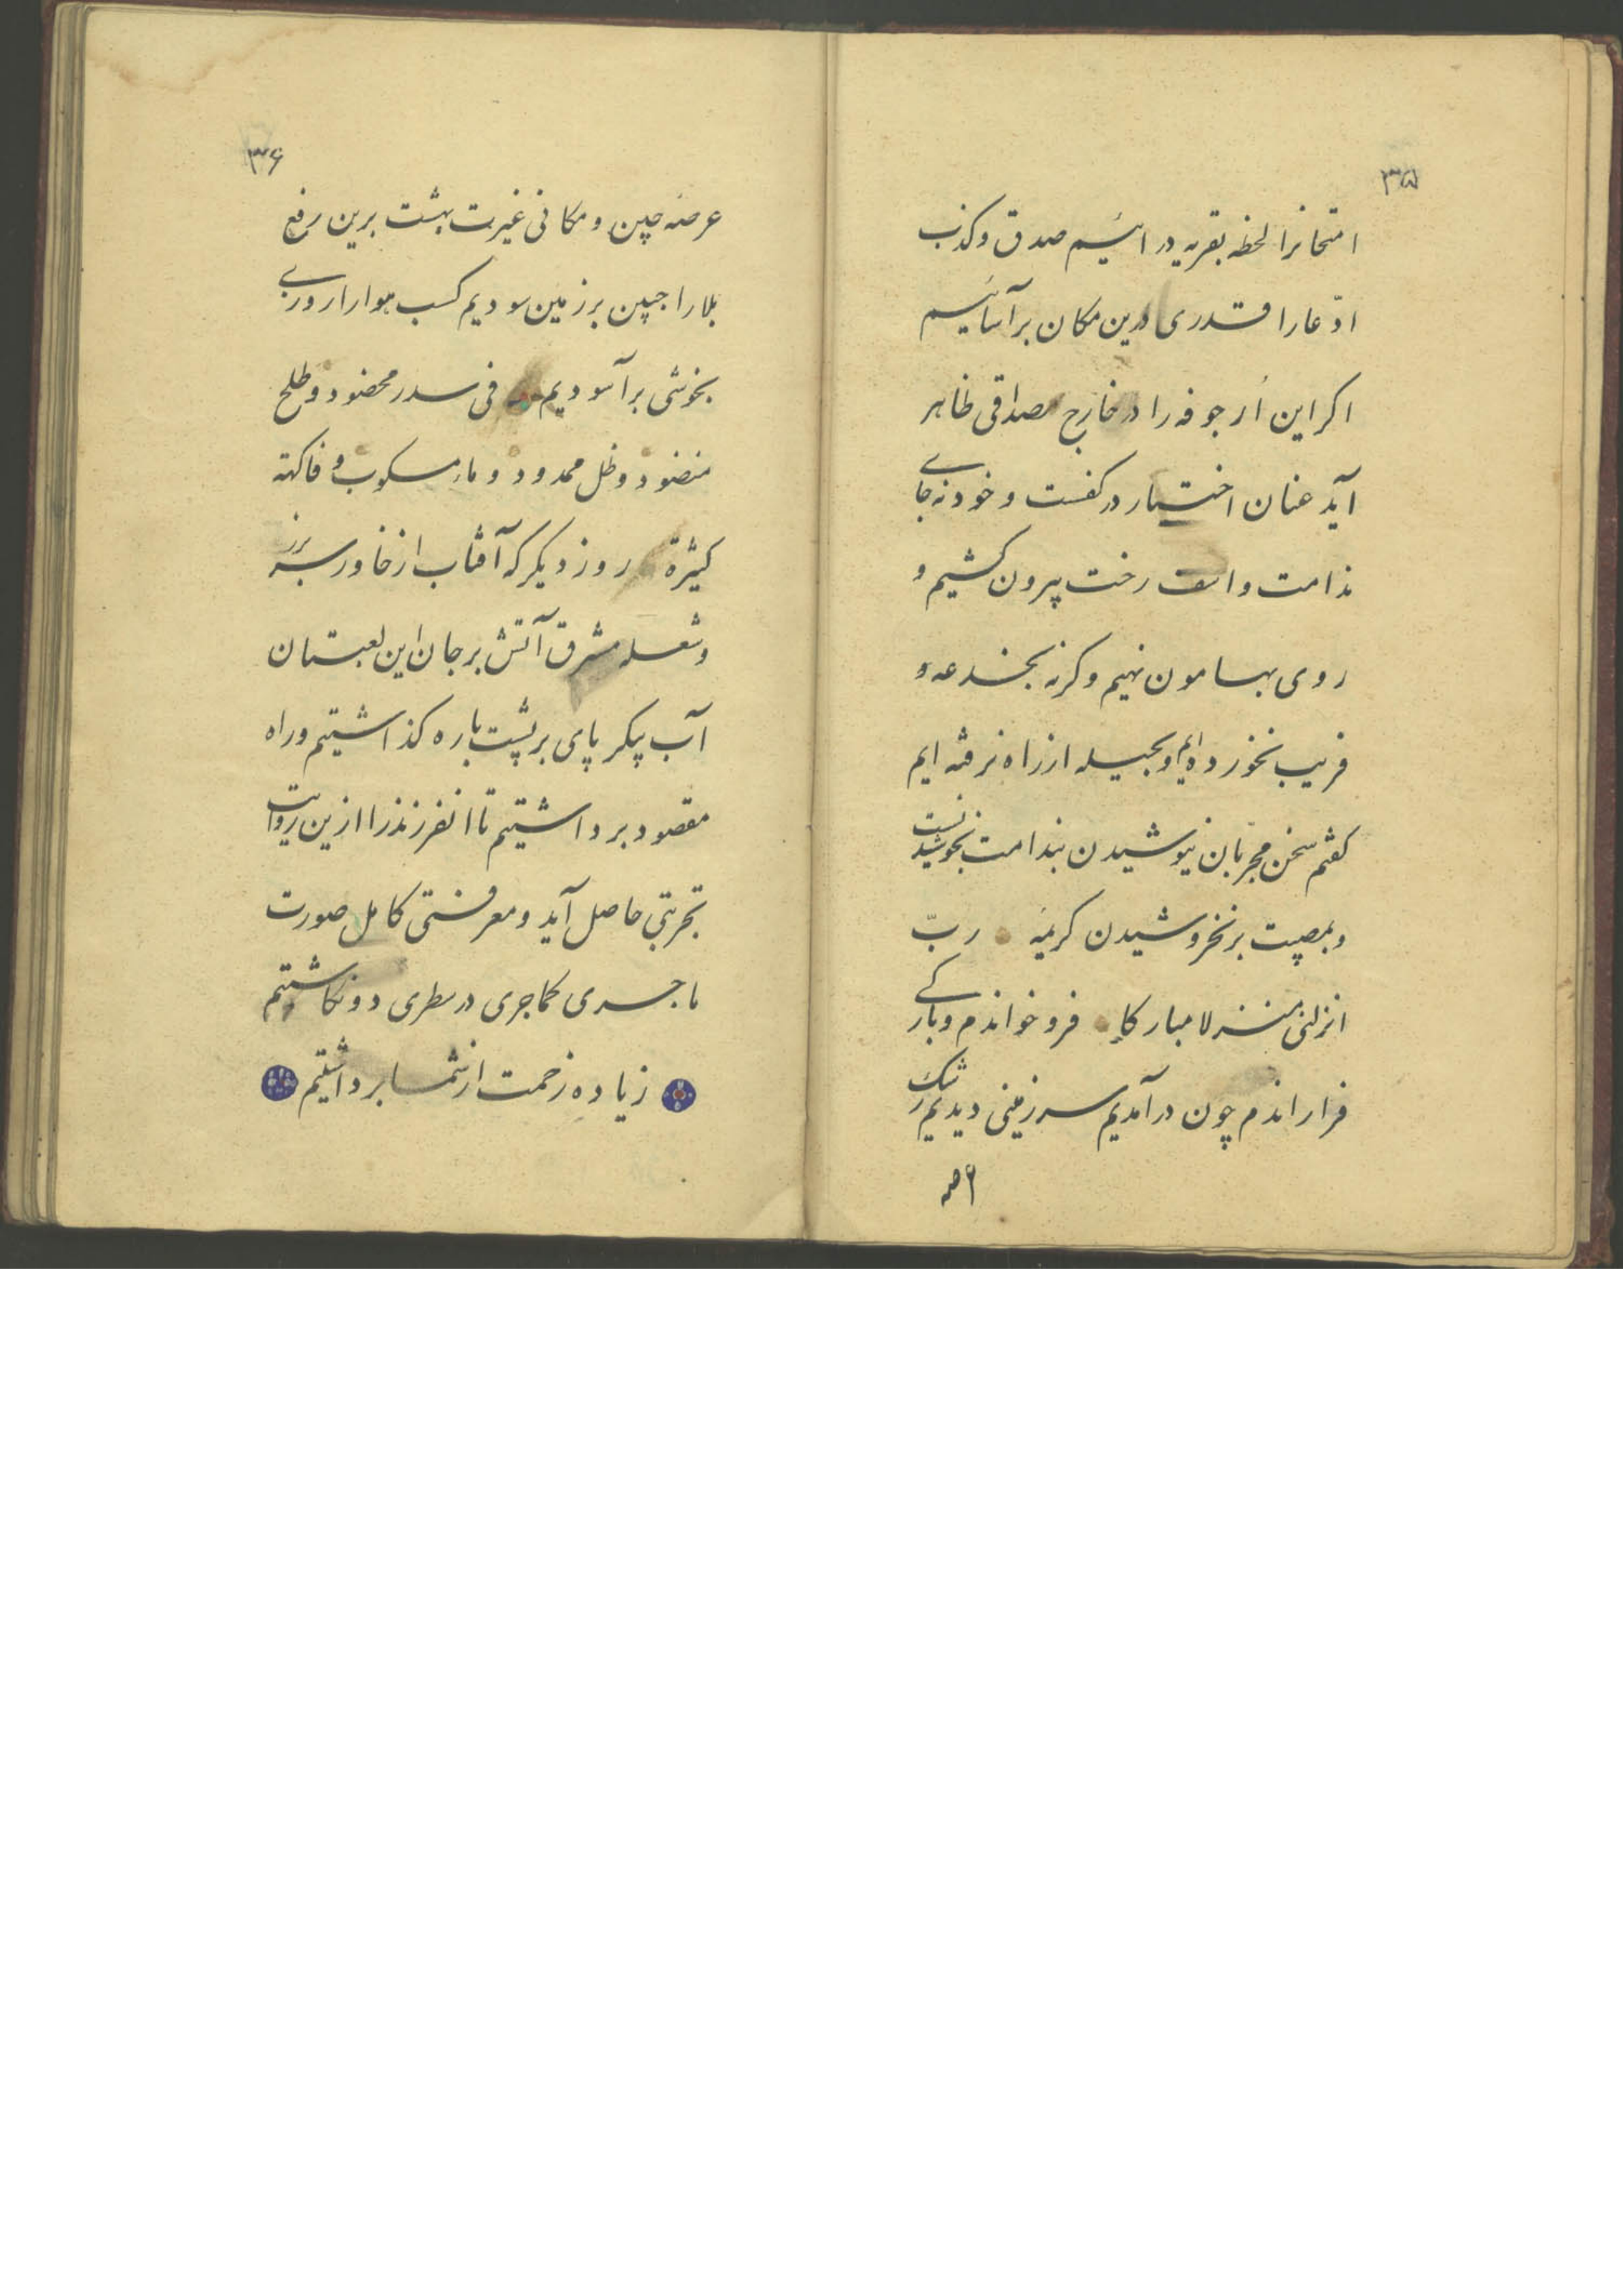 ۳۵
امتحانرا لحظه بقریه در ائیم صدق و کذب
ادّعا را قدری درین مکان برآسائیم
اکر این اُرجوفه را در خارج مصداقی ظاهر
آید عنان اختیار در کفست و خود نه جای
ندامت و اسف رخت بیرون کشیم و
روی بهامون نهیم وکرنه بخدعه و
فریب نخورده‌ایم و بحیله از راه نرفته ایم
کفتم سخن مجرّبان نیوشیدن بندامت نخوشیدنست
و بمصیبت برنخروشیدن کریمهٔ ربّ
انزلنی منزلا مبارکا فرو خواندم و بارکی
فرا راندم چون درآمدیم سرزمینی دیدیم رشک
۳۶
عرصهٔ چین و مکانی غیرت بهشت برین رفع
بلا را جبین بر زمین سودیم کسب هوا را روزی
بخوشی برآسودیم فی سدر مخضود و طلح
منضود و ظل ممدود و ماء مسکوب و فاکهة
کثیرة روز دیکر که آفتاب از خاور سر برزد
و شعله مشرق آتش بر جان این لعبتان
آب پیکر پای بر پشت باره کذاشتیم و راه
مقصود برداشتیم تا انفرزند را ازین روایت
تجربتی حاصل آید و معرفتی کامل صورت
ماجری کماجری در سطری دو نکاشتیم
زیاده زحمت از شما برداشتیم